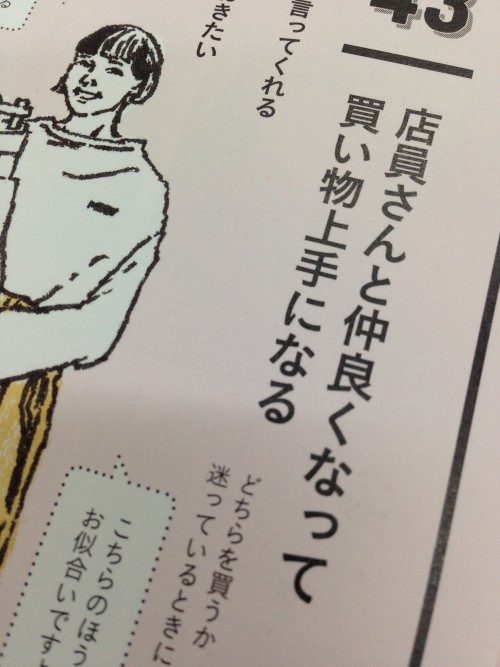 43
店員さんと仲良くなって
買い物上手になる
言ってくれる
きたい
どちらを買うか
迷っているときに
こちらのほう
お似合いですよ